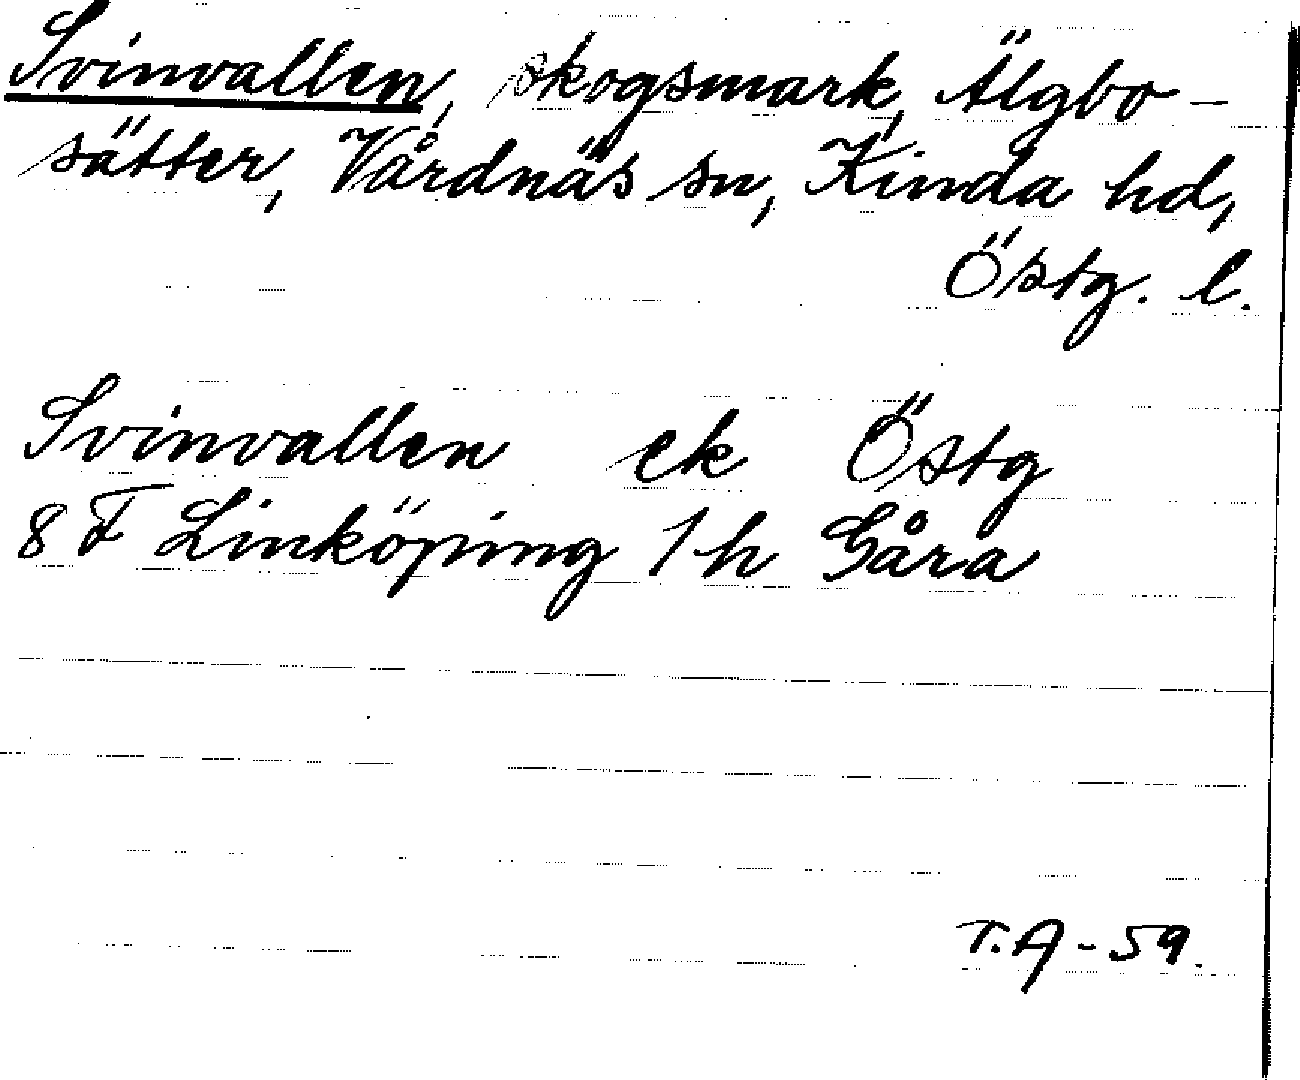 Svinvallen, skogsmark, Älgbo-
sätter, Vårdnäs sn, Kinda hd,
Östg. l.
Svinvallen ek Östg
8 F Linköping 1 h Gåra
T.A-59.